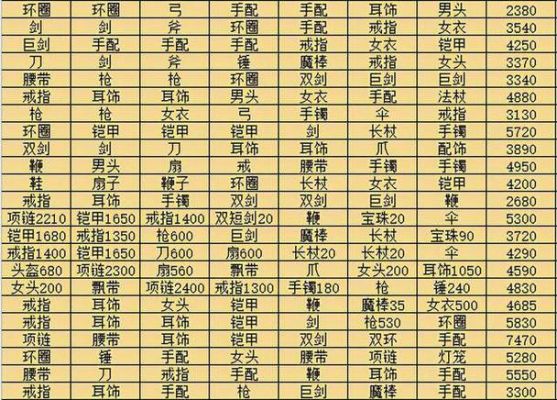 环圈 环圈 弓 手配 耳饰 男头 2380
剑 剑 斧 手配 戒指 女衣 3540
巨剑 手配 手配 手配 戒指 女衣 铠甲 4250
刀 剑 斧 锤 魔棒 戒指 女头 3370
腰带 枪 枪 环圈 双剑 巨剑 巨剑 3340
戒指 耳饰 男头 女衣 手配 法杖 4880
枪 枪 女衣 弓 手镯 伞 戒指 3130
环圈 铠甲 铠甲 铠甲 剑 长杖 手镯 5720
双剑 剑 刀 耳饰 耳饰 爪 配饰 3890
鞭 男头 扇 戒 腰带 手镯 手镯 4950
鞋 扇子 鞭子 环圈 长杖 女衣 铠甲 4200
戒指 耳饰 手镯 双剑 双剑 巨剑 鞭 2680
项链2210 铠甲1650 戒指1400 双短剑20 鞭 宝珠20 伞 5300
铠甲1680 戒指1350 枪600 巨剑 魔棒 长杖 宝珠90 3720
戒指1400 铠甲1650 刀600 扇600 长杖20 长杖20 铠甲 4290
头盔680 项链2300 扇560 飘带 爪 女头200 耳饰1050 4590
女头200 飘带 项链2400 戒指1300 手镯180 枪 锤240 4830
戒指 耳饰 女头 铠甲 鞭 魔棒35 女衣500 4685
戒指 耳饰 耳饰 铠甲 剑 枪530 环圈 5830
项链 耳饰 项链 铠甲 双剑 双环 手配 7470
环圈 锤 手配 女头 腰带 项链 灯笼 5280
腰带 刀 戒指 手配 鞭 耳饰 手配 5550
戒指 耳饰 手配 枪 巨剑 魔棒 手配 3300